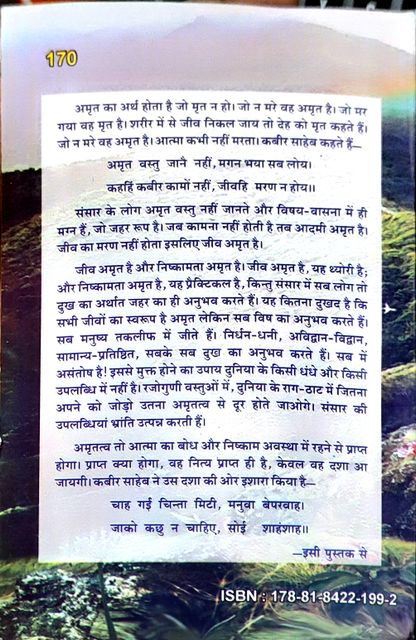 170
अमृत का अर्थ होता है जो मृत न हो। जो न मरे वह अमृत है। जो मर
गया वह मृत है। शरीर में से जीव निकल जाय तो देह को मृत कहते हैं।
जो न मरे वह अमृत है। आत्मा कभी नहीं मरता। कबीर साहेब कहते हैं—
अमृत वस्तु जानै नहीं, मगन भया सब लोय।
कहहिं कबीर कामों नहीं, जीवहि मरण न होय॥
संसार के लोग अमृत वस्तु नहीं जानते और विषय-वासना में ही
मग्न हैं, जो जहर रूप है। जब कामना नहीं होती है तब आदमी अमृत है।
जीव का मरण नहीं होता इसलिए जीव अमृत है।
जीव अमृत है और निष्कामता अमृत है। जीव अमृत है, यह थ्योरी है;
और निष्कामता अमृत है, यह प्रैक्टिकल है, किन्तु संसार में सब लोग तो
दुख का अर्थात जहर का ही अनुभव करते हैं। यह कितना दुखद है कि
सभी जीवों का स्वरूप है अमृत लेकिन सब विष का अनुभव करते हैं।
सब मनुष्य तकलीफ में जीते हैं। निर्धन-धनी, अविद्वान-विद्वान,
सामान्य-प्रतिष्ठित, सबके सब दुख का अनुभव करते हैं। सब में
असंतोष है! इससे मुक्त होने का उपाय दुनिया के किसी धंधे और किसी
उपलब्धि में नहीं है। रजोगुणी वस्तुओं में, दुनिया के राग-ठाट में जितना
अपने को जोड़ो उतना अमृतत्व से दूर होते जाओगे। संसार की
उपलब्धियां भ्रांति उत्पन्न करती हैं।
अमृतत्व तो आत्मा का बोध और निष्काम अवस्था में रहने से प्राप्त
होगा। प्राप्त क्या होगा, वह नित्य प्राप्त ही है, केवल वह दशा आ
जायगी। कबीर साहेब ने उस दशा की ओर इशारा किया है—
चाह गई चिन्ता मिटी, मनुवा बेपरवाह।
जाको कछु न चाहिए, सोई शाहंशाह॥
—इसी पुस्तक से
ISBN : 178-81-8422-199-2